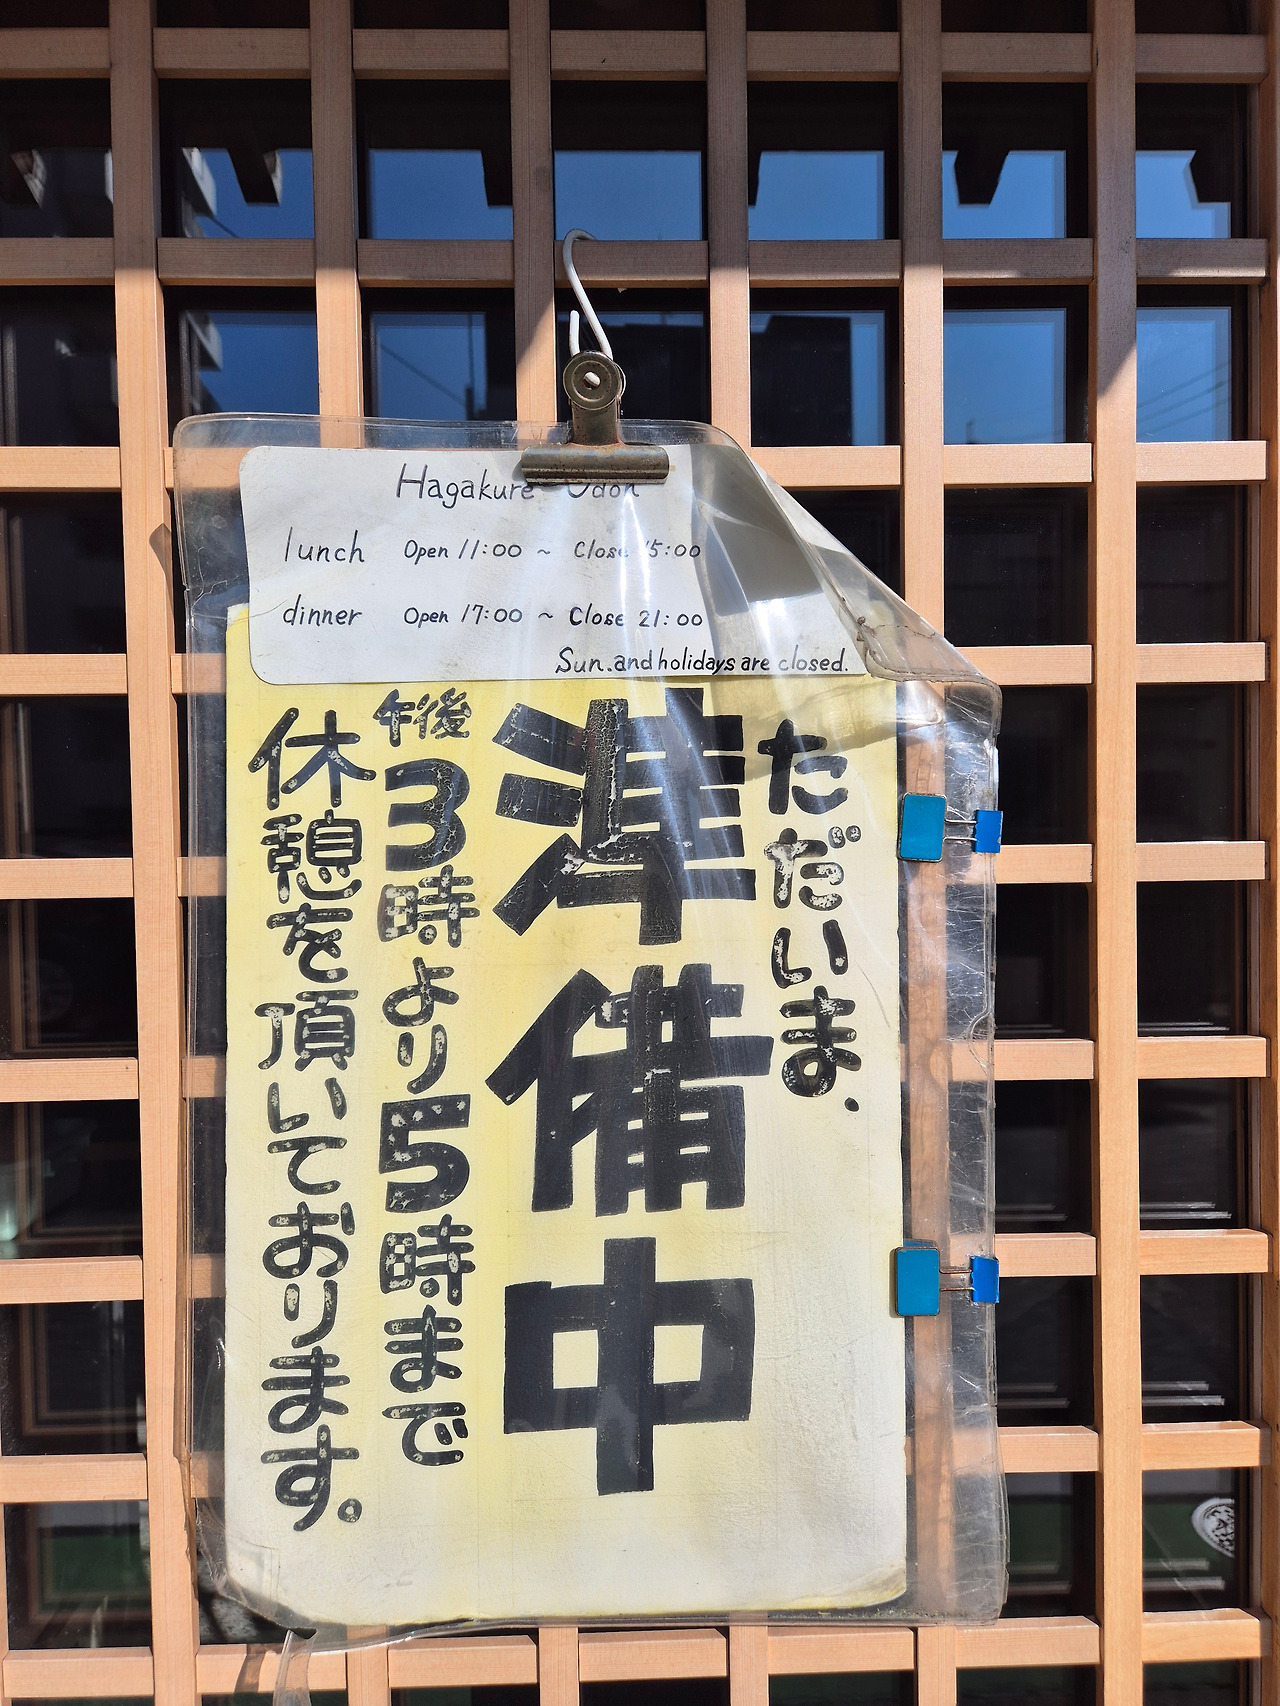 Hagakure Udon
lunch Open 11:00 ~ Close 15:00
dinner Open 17:00 ~ Close 21:00
Sun.and holidays are closed.
ただいま、
準備中
午後3時より5時まで
休憩を頂いております。